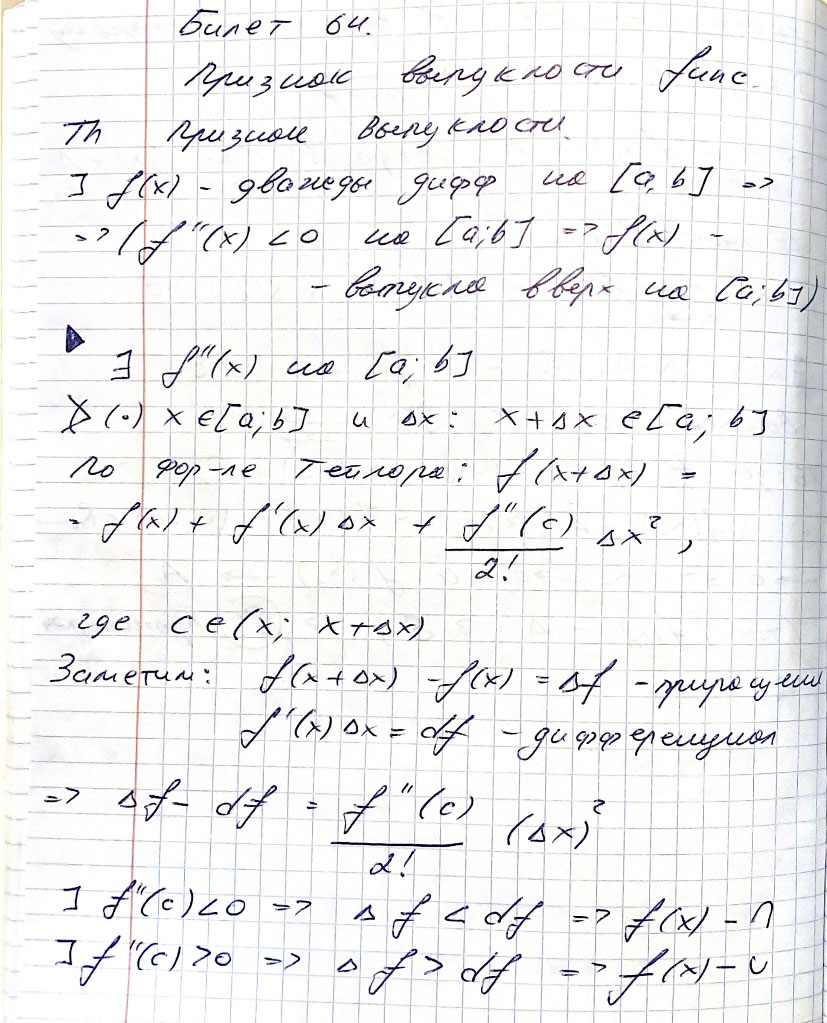 Билет 64.
Признак выпуклости func.
Th Признак выпуклости.
] f(x) - дважды дифф на [a, b] =>
=> (f''(x) < 0 на [a; b] => f(x) -
- выпукла вверх на [a; b])
∃ f''(x) на [a; b]
(·) x ∈ [a; b] и Δx: x + Δx ∈ [a; b]
По фор-ле Тейлора: f(x+Δx) =
= f(x) + f'(x) Δx + f''(c)/2! Δx²,
где c ∈ (x; x+Δx)
Заметим: f(x+Δx) - f(x) = Δf - приращение
f'(x) Δx = df - дифференциал
=> Δf - df = f''(c)/2! (Δx)²
] f''(c) < 0 => Δf < df => f(x) - ∩
] f''(c) > 0 => Δf > df => f(x) - ∪